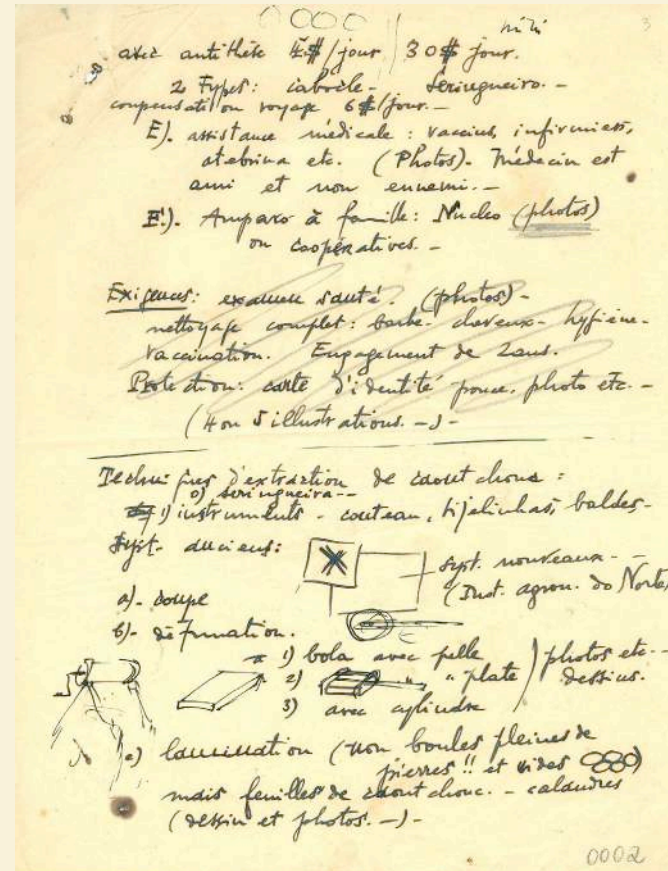 mini 3
avec antithèse 4$/jour / 30$ jour.
2 Types: caboclo - Seringueiro. -
compensation voyage 6$/jour. -
E). assistance médicale: vaccins, infirmiers,
atebrina etc. (Photos). Médecin est
ami et non ennemi. -
E'). Amparo à famille: Nucleo (photos)
ou coopératives. -
Exigences: examen santé. (photos) -
nettoyage complet: barbe - cheveux - hygiène -
vaccination. Engagement de 2 ans.
Protection: carte d'identité pouce, photo etc. -
(4 ou 5 illustrations. -) -
Techniques d'extraction de caoutchouc:
0) seringueira --
1) instruments - couteau, tijelinhas, baldes -
Syst. anciens:
syst. nouveaux - -
(Inst. agron. do Norte)
a) - coupe
b) - de fumation.
1) bola avec pelle
2) " " plate
3) avec cylindre
photos etc. --
dessins.
c) lamination (non boules pleines de
pierres !! et vides
mais feuilles de caoutchouc. - calandres
(dessin et photos. -) -
0002